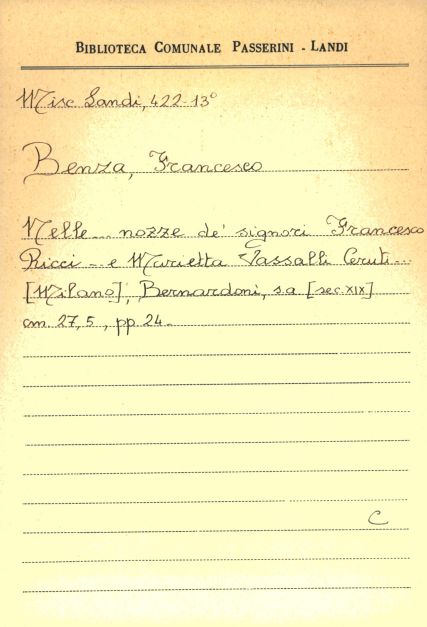 BIBLIOTECA COMUNALE PASSERINI - LANDI
Misc Landi, 422-13°
Benza, Francesco
Nelle... nozze de' signori Francesco
Ricci... e Marietta Vassalli Ceruti...
[Milano], Bernardoni, s.a [sec. XIX]
cm. 27,5, pp 24.
C